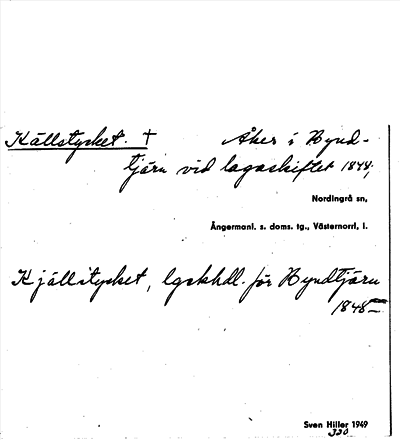 Källstycket. † Åker i Rynd-
tjärn vid lagaskiftet 1848;
Nordingrå sn,
Ångermanl. s. doms. tg., Västernorrl. l.
Kjällstycket, lgskhdl. för Ryndtjärn
1848.—
Sven Hiller 1949